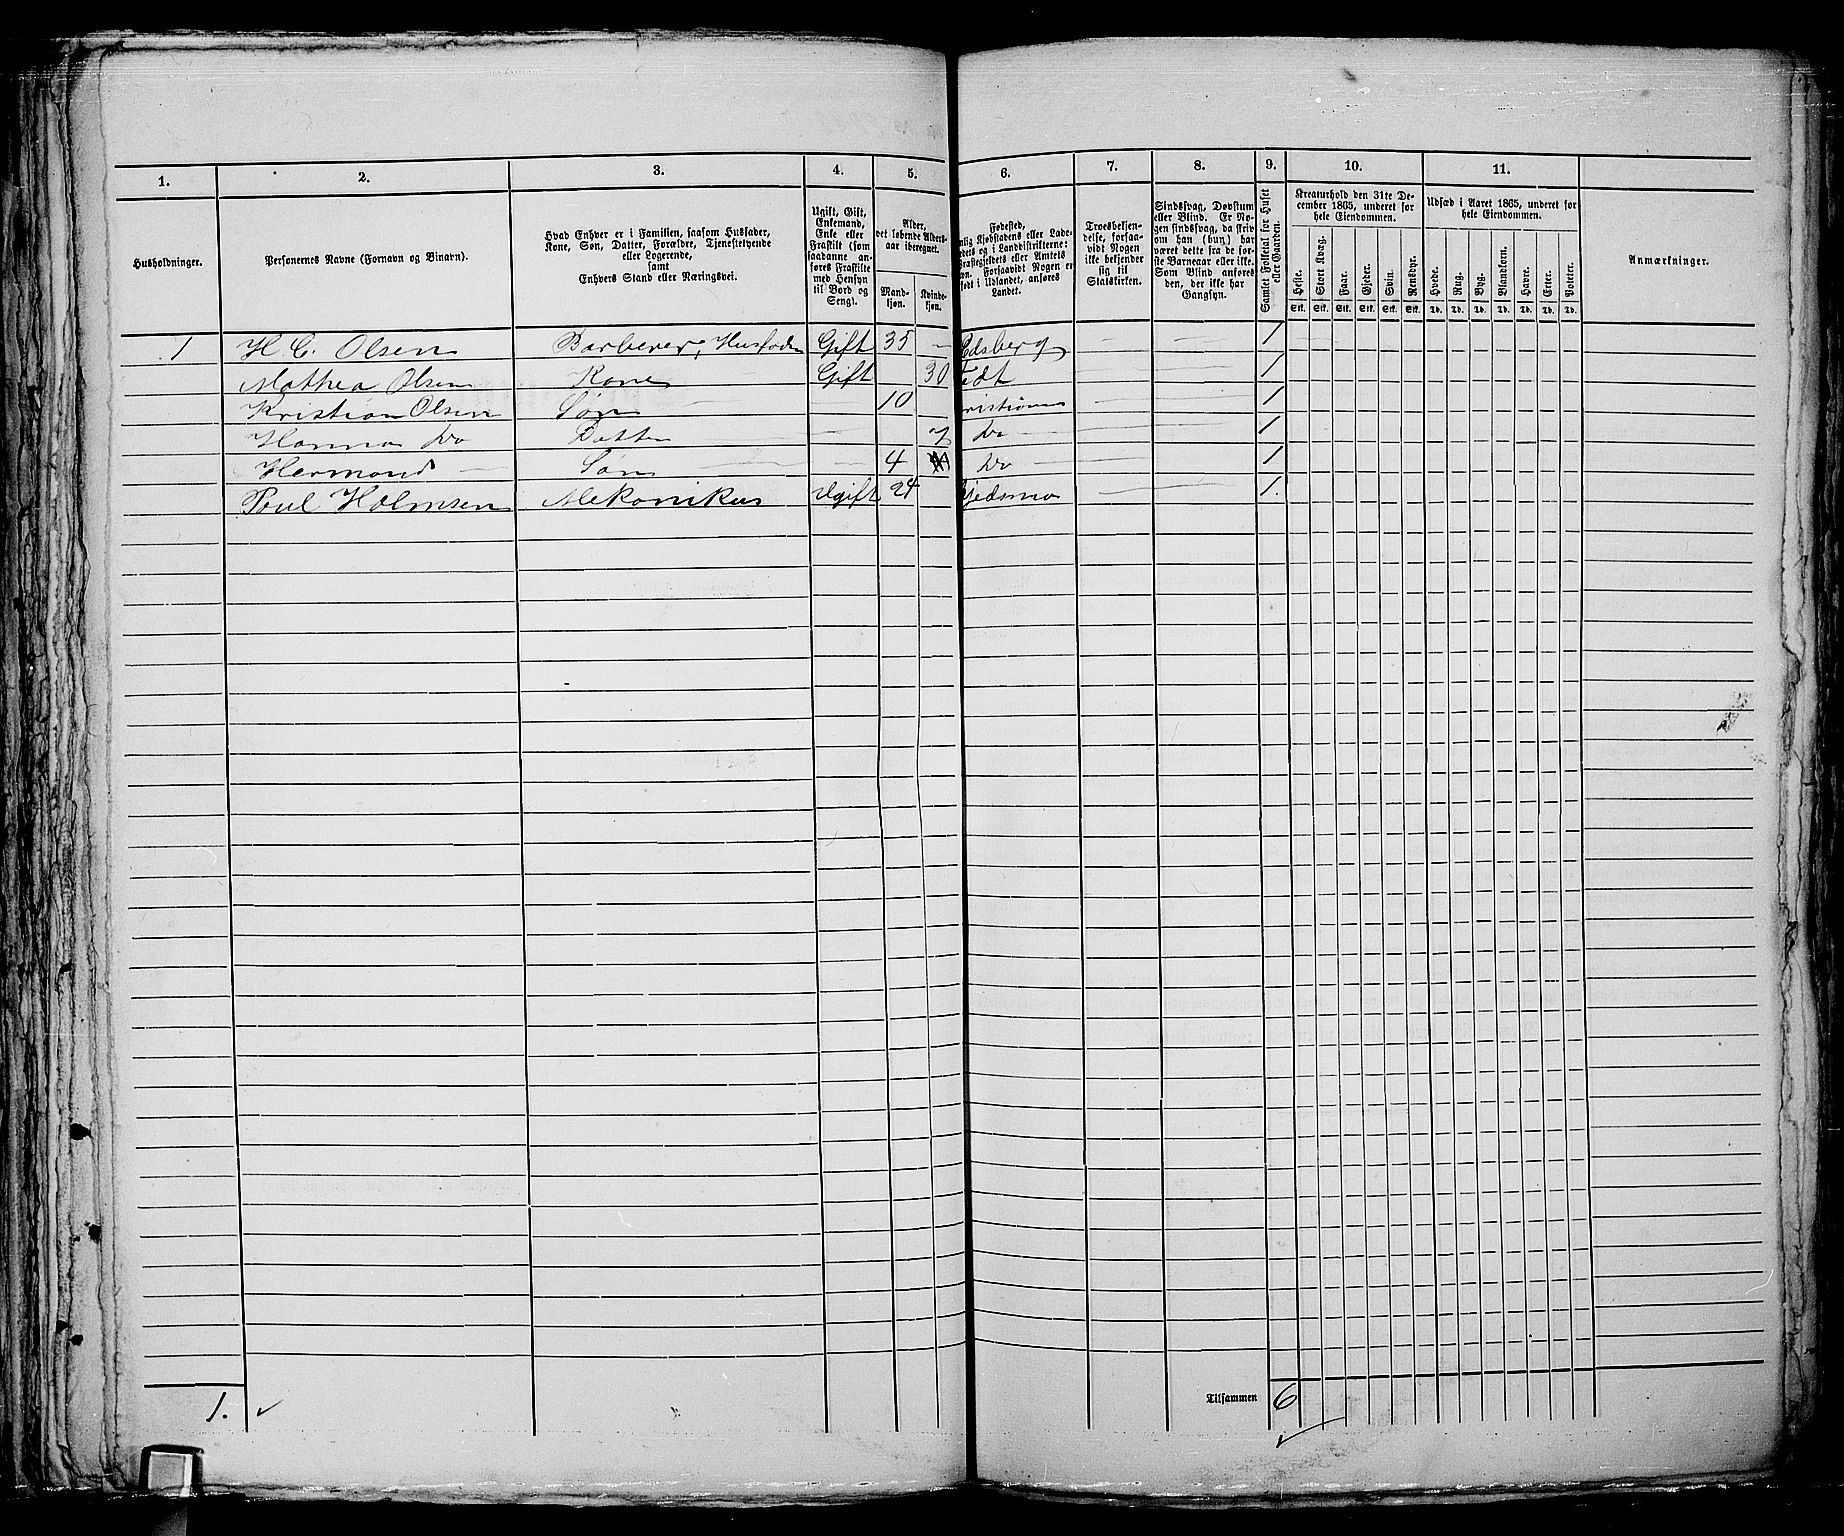 1. 2. 3. 4. 5. 6. 7. 8. 9. 10. 11.
Husholdninger.
Personernes Navne (Fornavn og Binavn).
Hvad Enhver er i Familien, saasom Husfader,
Kone, Søn, Datter, Forældre, Tjenestetyende
eller Logerende,
samt
Enhvers Stand eller Næringsvei.
Ugift, Gift,
Enkemand,
Enke eller
Fraskilt (som
saadanne an-
føres Fraskilte
med Hensyn
til Bord og
Seng).
Alder,
det løbende Alders-
aar iberegnet.
Mand-
kjøn.
Kvinde-
kjøn.
Fødested,
Kjøbstadens eller Lade-
og i Landdistrikterne:
eller Amtets
Forsaavidt Nogen er
født i Udlandet, anføres
Landet.
Troesbekjen-
delse, forsaa-
vidt Nogen
ikke bekjender
sig til
Statskirken.
Sindssvag, Døvstum
eller Blind. Er No-
gen sindssvag, da skriv
om han (hun) har
været dette fra de før-
ste Barneaar eller ikke.
Som Blind anføres
den, der ikke har
Gangsyn.
Samlet Folketal for Huset
eller Gaarden.
Kreaturhold den 31te De-
cember 1865, underet for
hele Eiendommen.
Heste. Stort Kvæg. Faar. Gjeder. Svin. Rensdyr.
Stk. Stk. Stk. Stk. Stk. Stk.
Udsæd i Aaret 1865, underet for
hele Eiendommen.
Hvede. Rug. Byg. Blandkorn. Havre. Erter. Poteter.
Td. Td. Td. Td. Td. Td. Td.
Anmærkninger.
1 H. C. Olsen Barberer, Husfader Gift 35 — Edsberg — — 1
Mathea Olsen Kone Gift 30 — — 1
Kristian Olsen Søn — 10 — — 1
Hanna Do Datter — 7 Do — — 1
Hermand — Søn — 4 Do — — 1
Poul Holmsen Mekanikus Ugift 24 — — 1.
1. Tilsammen 6